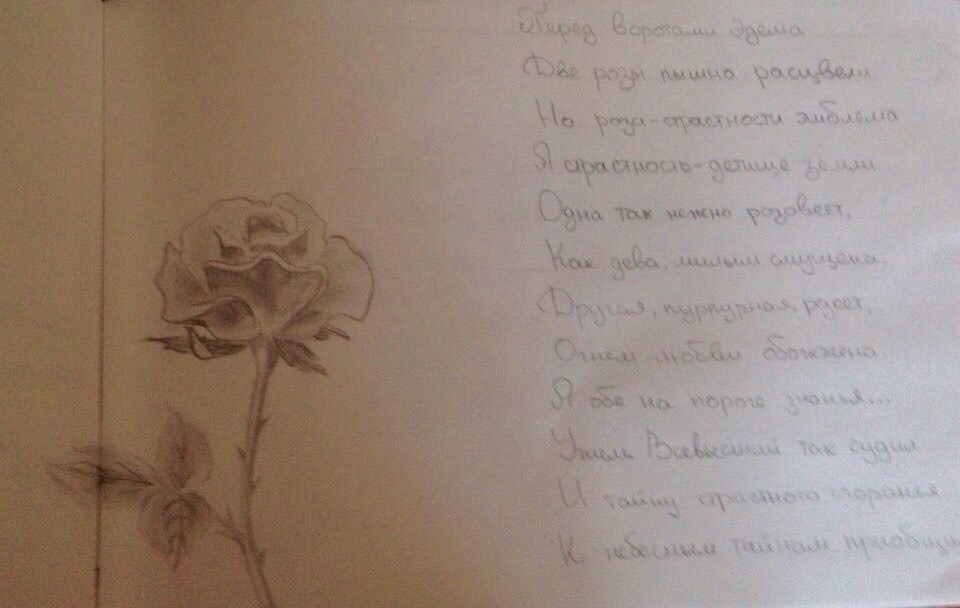 Перед воротами Эдема
Две розы пышно расцвели
Но роза-страстности эмблема
Я страстность-детище земли
Одна так нежно розовеет,
Как дева, милым смущена,
Другая, пурпурная, рдеет,
Огнем любви обожжена.
Я обе на пороге знанья...
Ужель Всевысший так судил
И тайну страстного сгоранья
К небесным тайнам приобщи